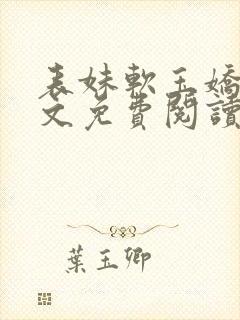 表妹軟玉嬌
文免費閱讀
葉玉卿